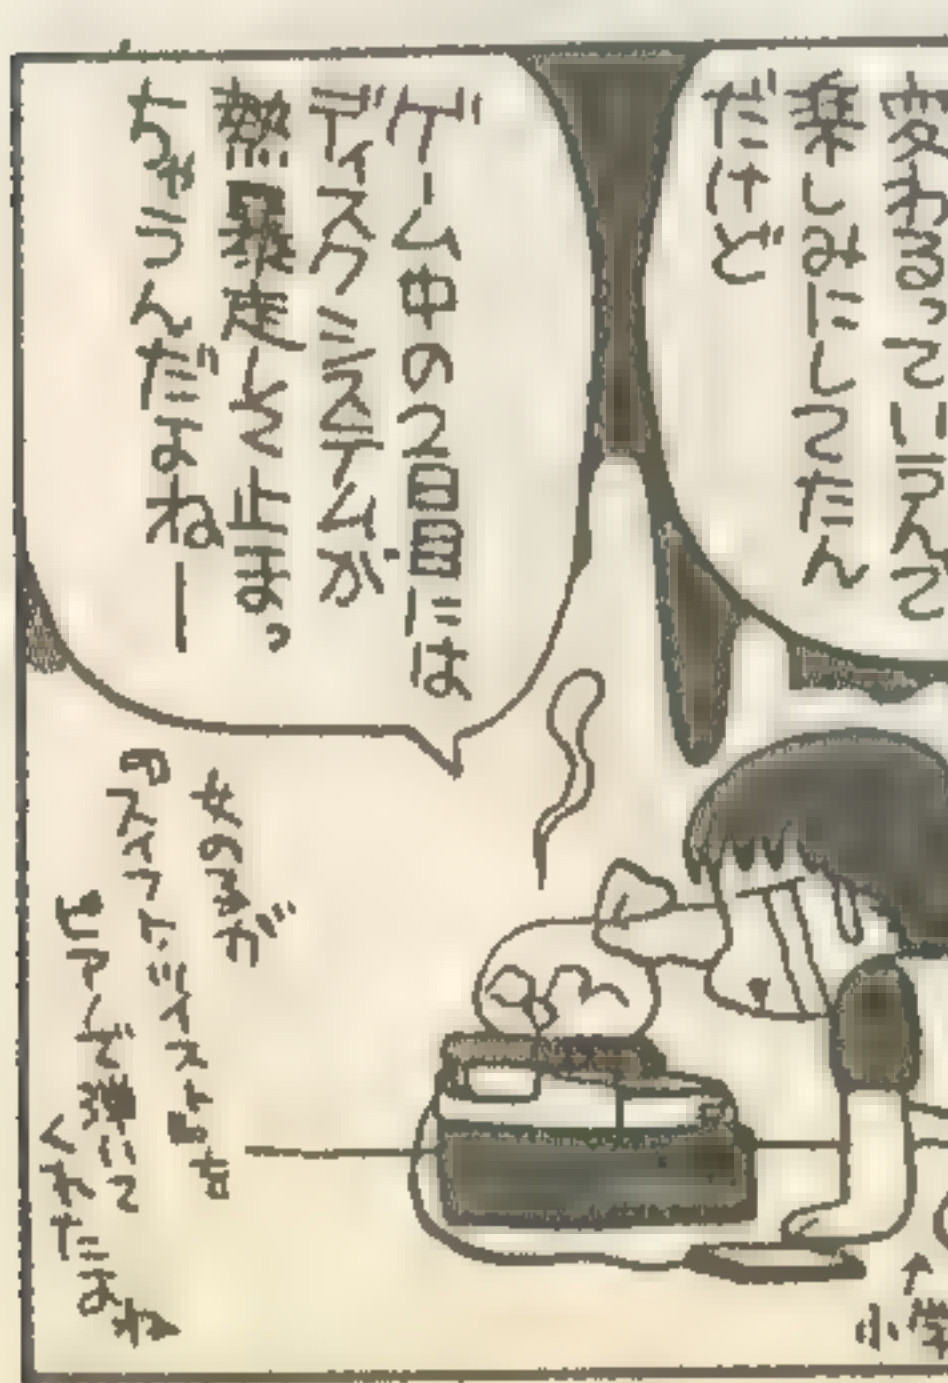 変わるっていうんで
楽しみにしてたん
だけど
ゲーム中の2日目には
ディスクシステムが
熱暴走して止まっ
ちゃうんだよねー
女の子が
ピアノで弾いて
くれたよね
小学